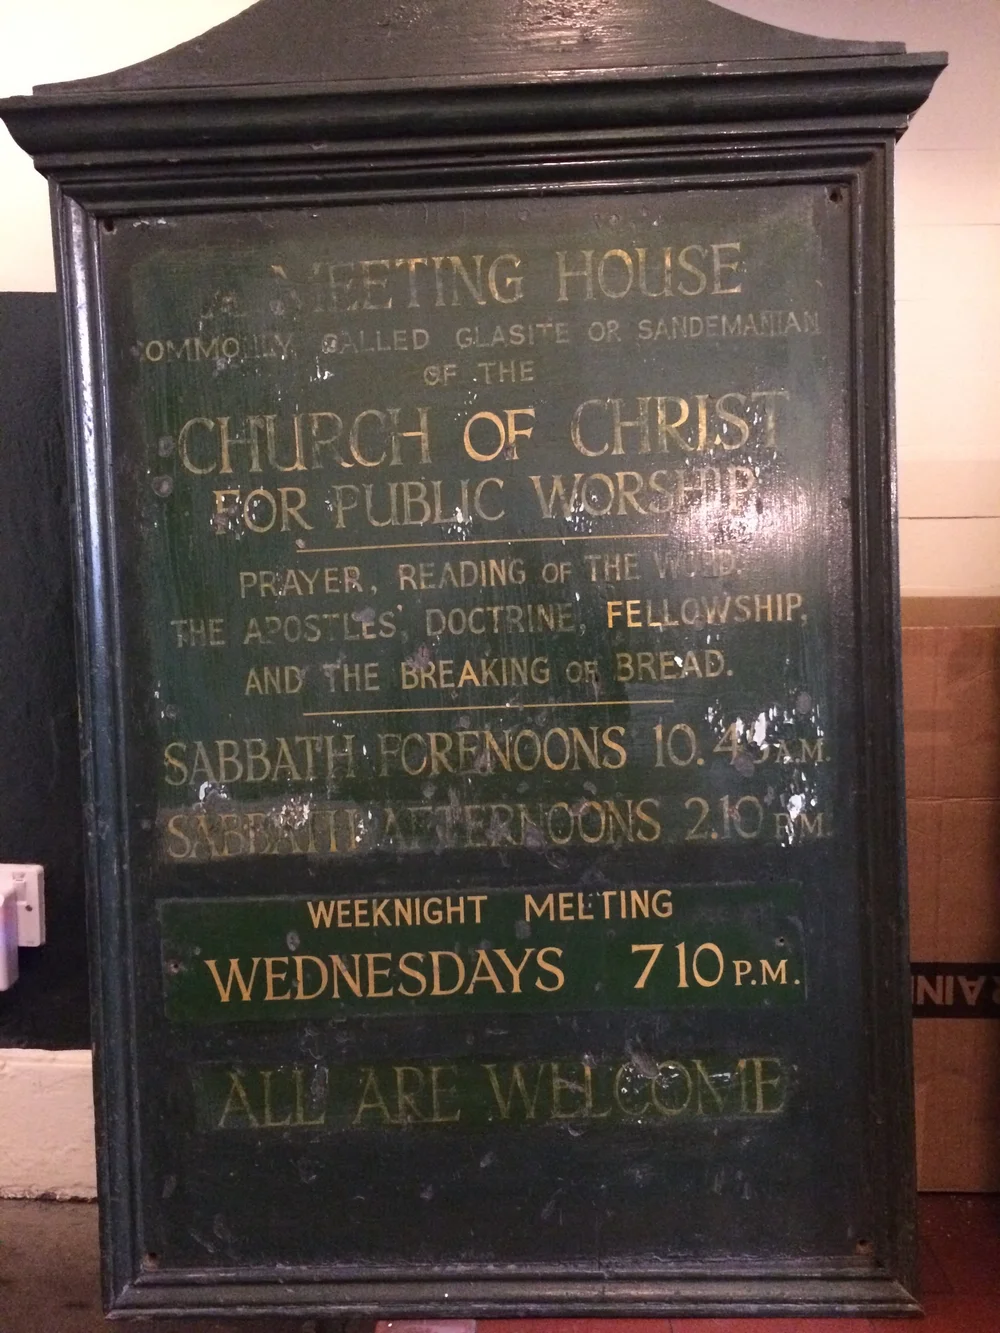 MEETING HOUSE
COMMONLY CALLED GLASITE OR SANDEMANIAN
OF THE
CHURCH OF CHRIST
FOR PUBLIC WORSHIP
PRAYER, READING OF THE WORD.
THE APOSTLES' DOCTRINE, FELLOWSHIP,
AND THE BREAKING OF BREAD.
SABBATH FORENOONS 10.45 A.M.
SABBATH AFTERNOONS 2.10 P.M.
WEEKNIGHT MEETING
WEDNESDAYS 7 10 P.M.
ALL ARE WELCOME